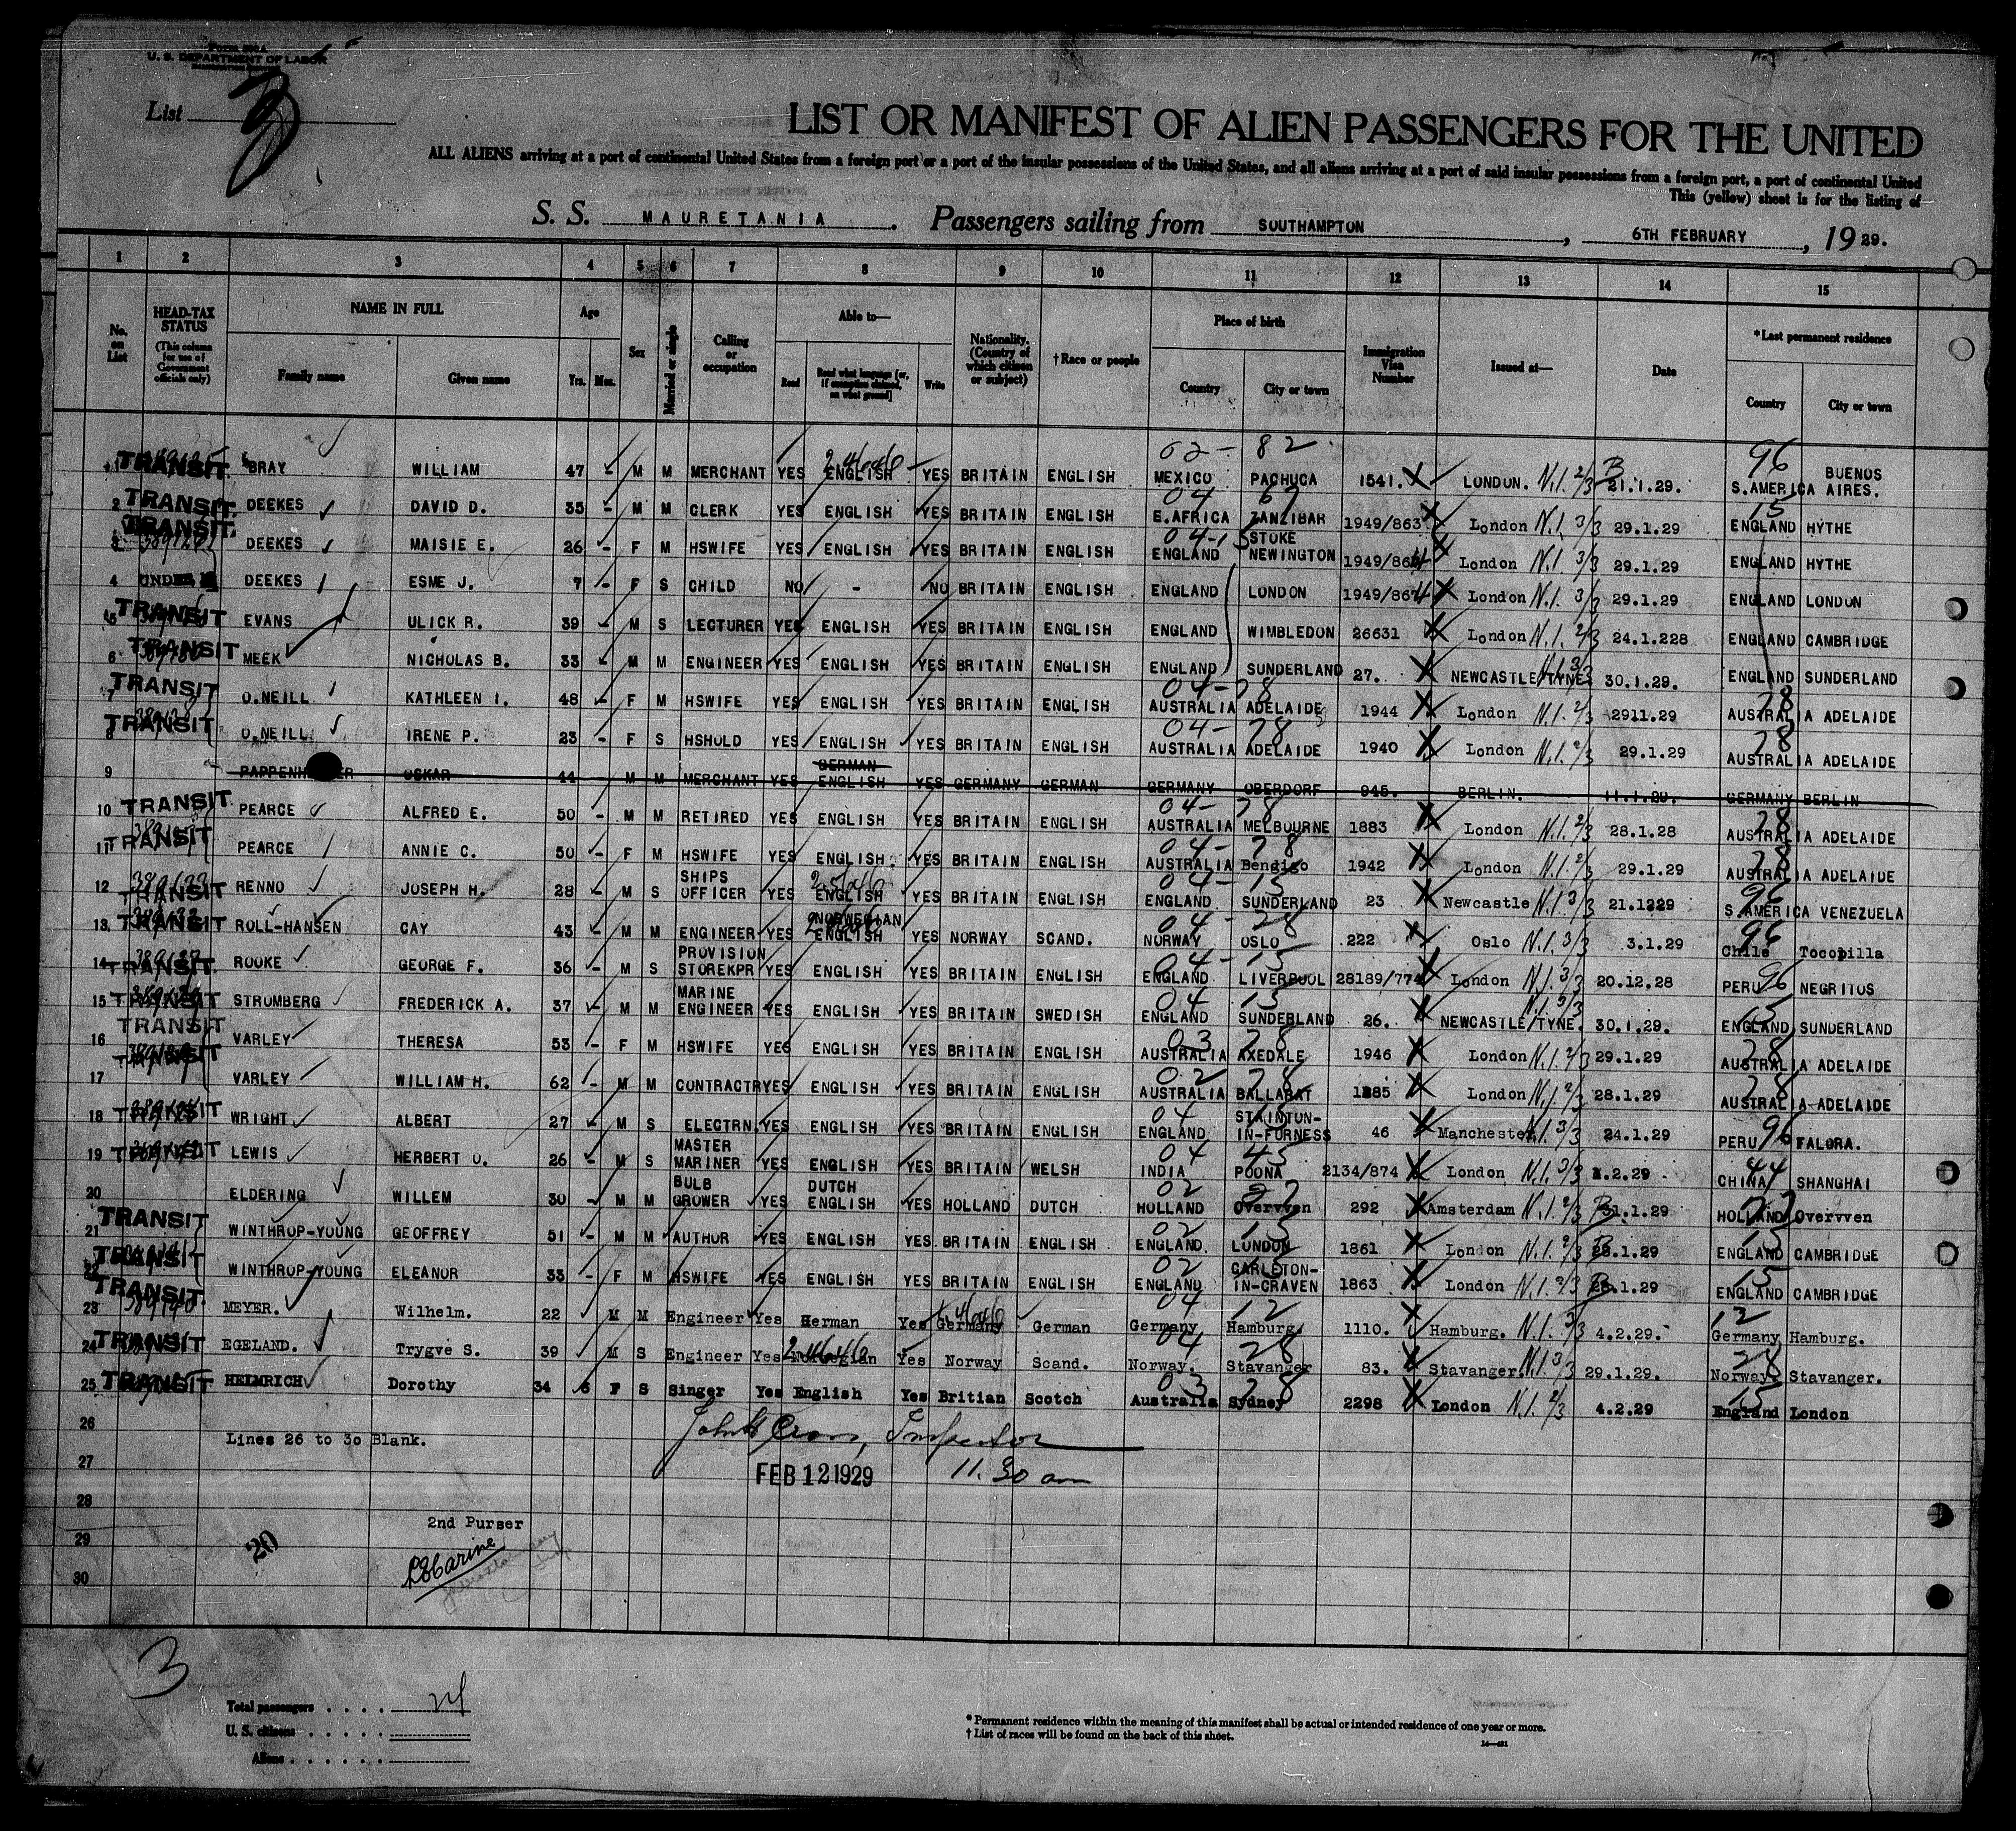 Form 500 A
U. S. DEPARTMENT OF LABOR
List 3
LIST OR MANIFEST OF ALIEN PASSENGERS FOR THE UNITED
ALL ALIENS arriving at a port of continental United States from a foreign port or a port of the insular possessions of the United States, and all aliens arriving at a port of said insular possessions from a foreign port, a port of continental United
This (yellow) sheet is for the listing of
S. S. MAURETANIA. Passengers sailing from SOUTHAMPTON, 6TH FEBRUARY, 19 29.
1 2 3 4 5 6 7 8 9 10 11 12 13 14 15
No. on List HEAD-TAX STATUS (This column for use of Government officials only) NAME IN FULL Family name Given name Age Yrs. Mos. Sex Married or single Calling or occupation Able to— Read Read what language [or, if exemption claimed, on what ground] Write Nationality. (Country of which citizen or subject) †Race or people Place of birth Country City or town Immigration Visa Number Issued at— Date *Last permanent residence Country City or town
62 - 82 96
TRANSIT. BRAY WILLIAM 47 - M M MERCHANT YES ENGLISH YES BRITAIN ENGLISH MEXICO PACHUCA 1541. LONDON. N.I. 2/3 21.1.29. S.AMERICA BUENOS AIRES.
04 67 15
2 TRANSIT. DEEKES DAVID D. 35 - M M CLERK YES ENGLISH YES BRITAIN ENGLISH E.AFRICA ZANZIBAR 1949/863 London N.I. 3/3 29.1.29 ENGLAND HYTHE
04-15
3 TRANSIT. DEEKES MAISIE E. 26 - F M HSWIFE YES ENGLISH YES BRITAIN ENGLISH ENGLAND STOKE NEWINGTON 1949/864 London N.I. 3/3 29.1.29 ENGLAND HYTHE
4 UNDER DEEKES ESME J. 7 - F S CHILD NO - NO BRITAIN ENGLISH ENGLAND LONDON 1949/864 London N.I. 3/3 29.1.29 ENGLAND LONDON
5 TRANSIT EVANS ULICK R. 39 - M S LECTURER YES ENGLISH YES BRITAIN ENGLISH ENGLAND WIMBLEDON 26631 London N.I. 2/3 24.1.228 ENGLAND CAMBRIDGE
6 TRANSIT MEEK NICHOLAS B. 33 - M M ENGINEER YES ENGLISH YES BRITAIN ENGLISH ENGLAND SUNDERLAND 27. NEWCASTLE/TYNE N.I. 3/3 30.1.29. ENGLAND SUNDERLAND
04-78 78
7 TRANSIT O.NEILL KATHLEEN I. 48 - F M HSWIFE YES ENGLISH YES BRITAIN ENGLISH AUSTRALIA ADELAIDE 1944 London N.I. 2/3 2911.29 AUSTRALIA ADELAIDE
04-78 78
8 TRANSIT O.NEILL IRENE P. 23 - F S HSHOLD YES ENGLISH YES BRITAIN ENGLISH AUSTRALIA ADELAIDE 1940 London N.I. 2/3 29.1.29 AUSTRALIA ADELAIDE
9 OSKAR 44 M M MERCHANT YES GERMAN ENGLISH YES GERMANY GERMAN GERMANY OBERDORF 945. BERLIN. 11.1.29. GERMANY BERLIN
04-78 78
10 TRANSIT PEARCE ALFRED E. 50 - M M RETIRED YES ENGLISH YES BRITAIN ENGLISH AUSTRALIA MELBOURNE 1883 London N.I. 2/3 28.1.28 AUSTRALIA ADELAIDE
04-78 78
11 TRANSIT PEARCE ANNIE C. 50 - F M HSWIFE YES ENGLISH. YES BRITAIN ENGLISH AUSTRALIA Bendigo 1942 London N.I. 2/3 29.1.29 AUSTRALIA ADELAIDE
04-15 96
12 TRANSIT RENNO JOSEPH H. 28 - M S SHIPS OFFICER YES ENGLISH YES BRITAIN ENGLISH ENGLAND SUNDERLAND 23 Newcastle N.I. 3/3 21.1229 S.AMERICA VENEZUELA
04-28 96
13 TRANSIT ROLL-HANSEN CAY 43 - M M ENGINEER YES NORWEGIAN ENGLISH YES NORWAY SCAND. NORWAY OSLO 222 Oslo N.I. 3/3 3.1.29 Chile Tocopilla
04-15 96
14 TRANSIT. ROOKE GEORGE F. 36 - M S PROVISION STOREKPR YES ENGLISH YES BRITAIN ENGLISH ENGLAND LIVERPOOL 28189/774 London N.I. 3/3 20.12.28 PERU NEGRITOS
04 15 15
15 TRANSIT STROMBERG FREDERICK A. 37 - M M MARINE ENGINEER YES ENGLISH YES BRITAIN SWEDISH ENGLAND SUNDERLAND 26. NEWCASTLE/TYNE. N.I. 3/3 30.1.29. ENGLAND SUNDERLAND
03 78 78
16 TRANSIT VARLEY THERESA 53 - F M HSWIFE YES ENGLISH YES BRITAIN ENGLISH AUSTRALIA AXEDALE 1946 London N.I. 2/3 29.1.29 AUSTRALIA ADELAIDE
02 78 78
17 TRANSIT VARLEY WILLIAM H. 62 - M M CONTRACTR YES ENGLISH YES BRITAIN ENGLISH AUSTRALIA BALLARAT 1885 London N.I. 2/3 28.1.29 AUSTRALIA ADELAIDE
04 15 96
18 TRANSIT WRIGHT ALBERT 27 - M S ELECTRN. YES ENGLISH YES BRITAIN ENGLISH ENGLAND STAINTON-IN-FURNESS 46 Manchester N.I. 3/3 24.1.29 PERU FALORA.
04 45 44
19 TRANSIT LEWIS HERBERT O. 26 - M S MASTER MARINER YES ENGLISH YES BRITAIN WELSH INDIA POONA 2134/874 London N.I. 3/3 1.2.29 CHINA SHANGHAI
02 27 27
20 ELDERING WILLEM 30 - M M BULB GROWER YES DUTCH ENGLISH YES HOLLAND DUTCH HOLLAND Overvven 292 Amsterdam N.I. 2/3 31.1.29 HOLLAND Overvven
02 15 15
21 TRANSIT WINTHROP-YOUNG GEOFFREY 51 - M M AUTHOR YES ENGLISH YES BRITAIN ENGLISH ENGLAND. LONDON 1861 London N.I. 2/3 28.1.29 ENGLAND CAMBRIDGE
02 15
22 TRANSIT WINTHROP-YOUNG ELEANOR 33 - F M HSWIFE YES ENGLISH YES BRITAIN ENGLISH ENGLAND CARLETON-IN-CRAVEN 1863 London N.I. 2/3 28.1.29 ENGLAND CAMBRIDGE
04 12 12
23 TRANSIT. MEYER. Wilhelm. 22 M M Engineer Yes German Yes Germany German Germany Hamburg 1110. Hamburg. N.I. 3/3 4.2.29. Germany Hamburg.
04 28 28
24 TRANSIT EGELAND. Trygve S. 39 M S Engineer Yes Norwegian Yes Norway Scand. Norway. Stavanger 83. Stavanger. N.I. 3/3 29.1.29. Norway. Stavanger.
03 78 15
25 TRANSIT HEIMRICH Dorothy 34 6 F S Singer Yes English Yes Britian Scotch Australia Sydney 2298 London N.I. 2/3 4.2.29 England London
26
Lines 26 to 30 Blank. Inspector
27 FEB 12 1929 11.30 am
28
2nd Purser
29 20
30
3
Total passengers
U. S. citizens
Aliens
* Permanent residence within the meaning of this manifest shall be actual or intended residence of one year or more.
† List of races will be found on the back of this sheet.